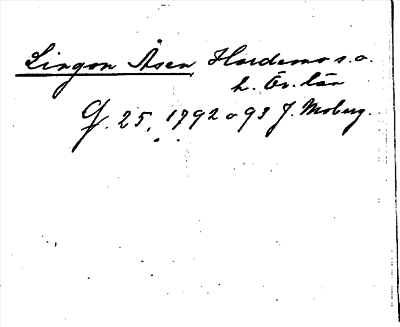 Lingon Åsen Hardemo s.o.
h. Ör. län
G. 25, 1792 o 93 J. Moberg.